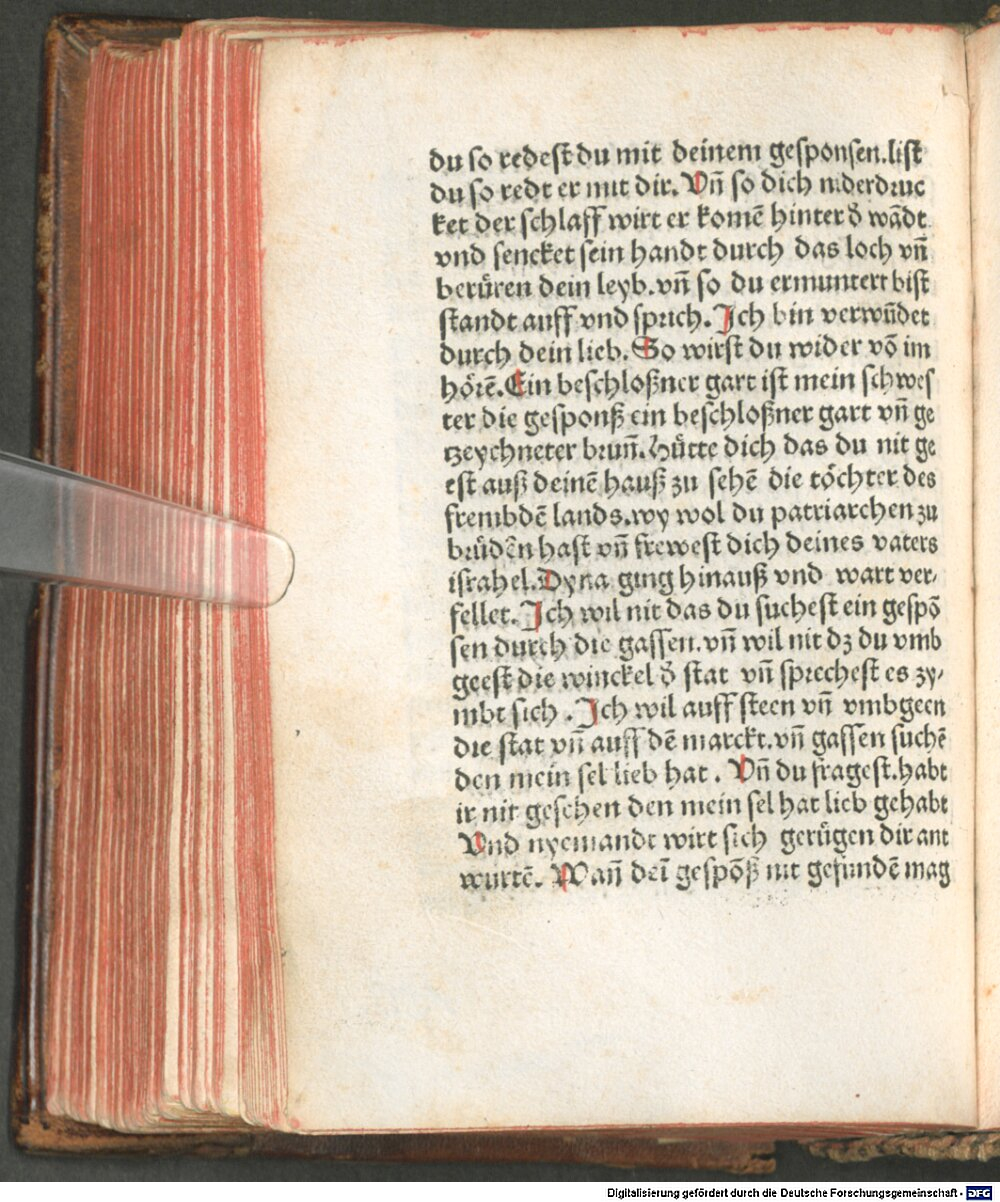 du so redest du mit deinem gesponsen. list
du so redt er mit dir. Vn̄ so dich niderdruc
ket der schlaff wirt er komē hinter d̕ wādt
vnd sencket sein handt durch das loch vn̄
berüren dein leyb. vn̄ so du ermuntert bist
standt auff vnd sprich. Ich bin verwūdet
durch dein lieb. So wirst du wider vō im
hörē. Ein beschloßner gart ist mein schwes
ter die gesponß ein beschloßner gart vn̄ ge
tzeychneter brun̄. Hütte dich das du nit ge
est auß deinē hauß zu sehē die töchter des
frembdē lands. wy wol du patriarchen zu
brüdēn hast vn̄ frewest dich deines vaters
israhel. Dyna ging hinauß vnd wart ver⸗
fellet. Ich wil nit das du suchest ein gespō
sen durch die gassen. vn̄ wil nit dz du vmb
geest die winckel d̕ stat vn̄ sprechest es zy⸗
mbt sich. Ich wil auff steen vn̄ vmbgeen
die stat vn̄ auff dē marckt. vn̄ gassen suchē
den mein sel lieb hat. Vn̄ du fragest. habt
ir nit gesehen den mein sel hat lieb gehabt
Vnd nyemandt wirt sich gerügen dir ant
wurtē. Wan̄ dei̅ gespōß nit gefundē mag
Digitalisierung gefördert durch die Deutsche Forschungsgemeinschaft - DFG